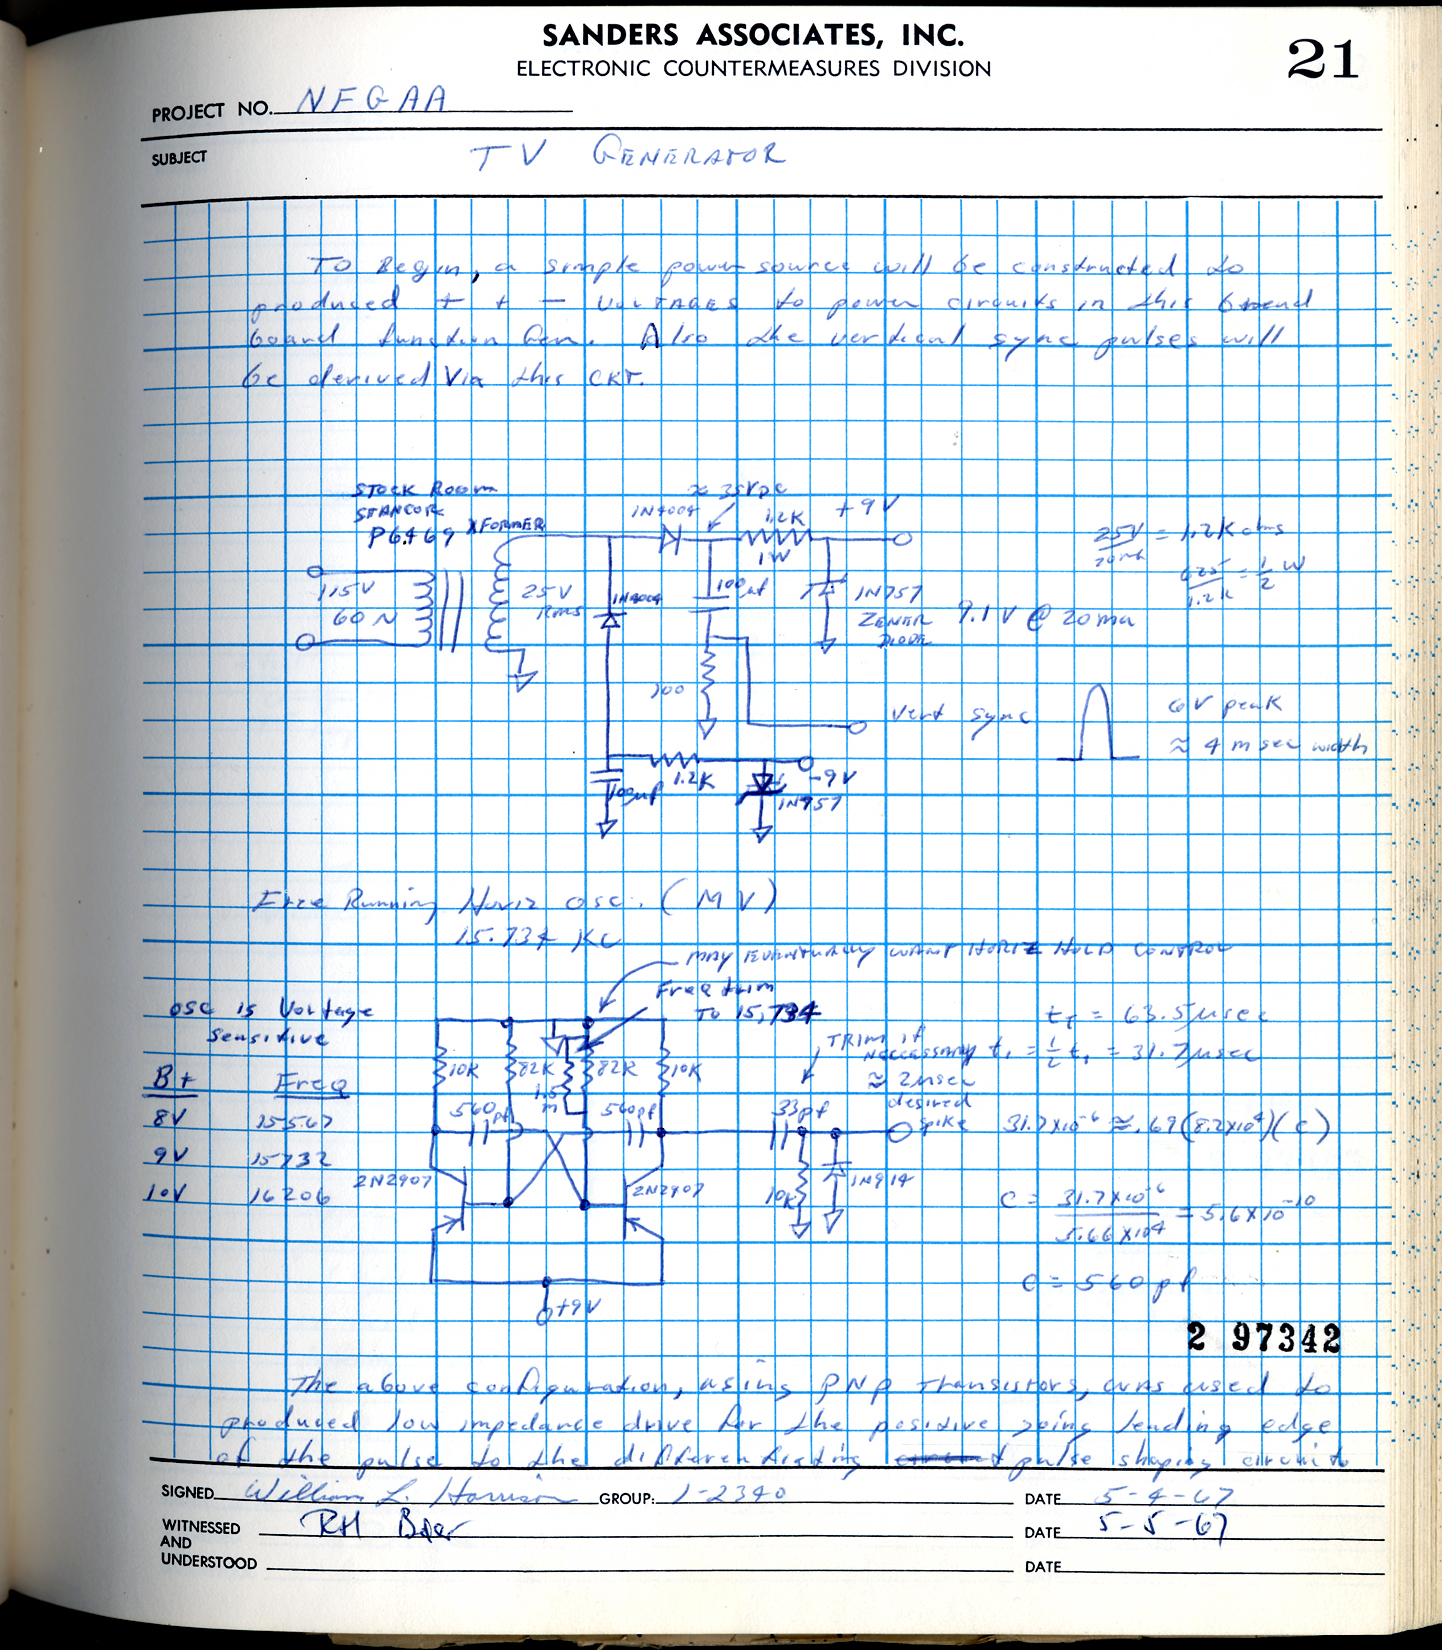 SANDERS ASSOCIATES, INC.
ELECTRONIC COUNTERMEASURES DIVISION
21
PROJECT NO. NFGAA
SUBJECT
TV GENERATOR
To Begin, a simple power source will be constructed to
produced + + - VOLTAGES to power circuits in this bread
board function Gen. Also the vertical sync pulses will
be derived Via this CKT.
STOCK ROOM
STANCOR
P6469 XFORMER
115V
60 N
25V
Rms
1N4004
1N4004
≈ 35VDC
1.2K
1W
+9V
100 uf
1N757
ZENER
DIODE
9.1V @ 20ma
25V/20ma = 1.2K ohms
625/1.2K = 1/2 W
100
Vert sync
6V peak
≈ 4 msec width
1.2K
100uf
-9V
1N757
Free Running Horiz osc. (MV)
15.734 KC
MAY EVENTUALLY WANT HORIZ HOLD CONTROL
Freq trim
TO 15,734
OSC is Voltage
Sensitive
B+ Freq
8V 15567
9V 15732
10V 16206
10K
82K
1.5
m
82K
10K
560pf
560pf
2N2907
2N2907
+9V
33pf
10K
1N914
TRIM if
neccessary
≈ 2usec
desired
spike
tT = 63.5 μsec
t1 = 1/2 t1 = 31.7 μsec
31.7x10-6 ≈ .69(8.2x104)(C)
C = 31.7x10-6/5.66x104 = 5.6x10-10
C = 560 pf
2 97342
The above configuration, using PNP Transistors, was used to
produced low impedance drive for the positive going leading edge
of the pulse to the differentiating pulse shaping circuit
SIGNED William L. Harrison GROUP: 1-2340 DATE 5-4-67
WITNESSED RH Baer DATE 5-5-67
AND
UNDERSTOOD DATE